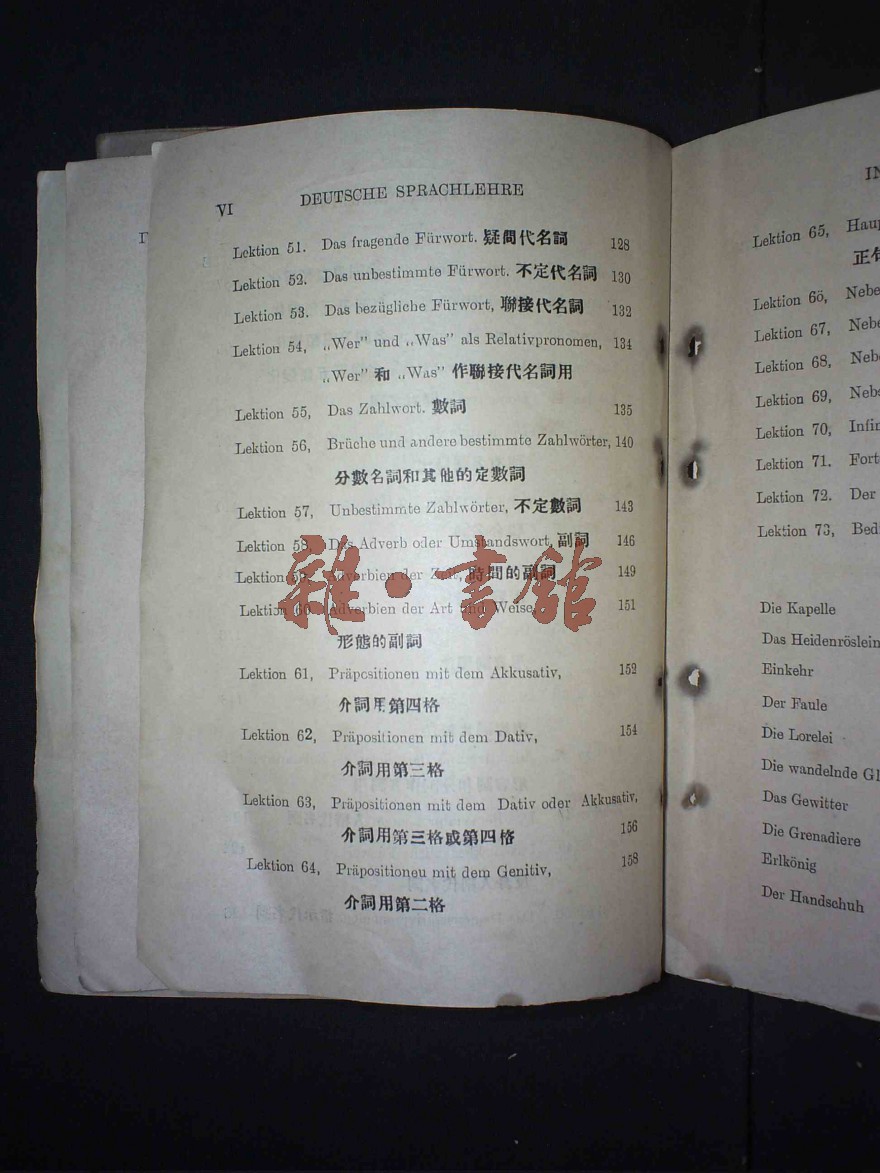 VI
DEUTSCHE SPRACHLEHRE
Lektion 51. Das fragende Fürwort. 疑問代名詞 128
Lektion 52. Das unbestimmte Fürwort. 不定代名詞 130
Lektion 53. Das bezügliche Fürwort, 聯接代名詞 132
Lektion 54, „Wer" und „Was" als Relativpronomen, 134
„Wer" 和 „Was" 作聯接代名詞用
Lektion 55, Das Zahlwort. 數詞 135
Lektion 56, Brüche und andere bestimmte Zahlwörter, 140
分數名詞和其他的定數詞
Lektion 57, Unbestimmte Zahlwörter, 不定數詞 143
Lektion 58, Das Adverb oder Umstandswort, 副詞 146
Lektion 59, Adverbien der Zeit, 時間的副詞 149
Lektion 60, Adverbien der Art und Weise, 151
形態的副詞
Lektion 61, Präpositionen mit dem Akkusativ, 152
介詞用第四格
Lektion 62, Präpositionen mit dem Dativ, 154
介詞用第三格
Lektion 63, Präpositionen mit dem Dativ oder Akkusativ,
介詞用第三格或第四格 156
Lektion 64, Präpositioneu mit dem Genitiv, 158
介詞用第二格
雜·書館
IN
Lektion 65, Haup
正句
Lektion 66, Nebe
Lektion 67, Nebe
Lektion 68, Nebe
Lektion 69, Nebs
Lektion 70, Infin
Lektion 71. Fort
Lektion 72. Der
Lektion 73, Bed
Die Kapelle
Das Heidenröslein
Einkehr
Der Faule
Die Lorelei
Die wandelnde Gl
Das Gewitter
Die Grenadiere
Erlkönig
Der Handschuh